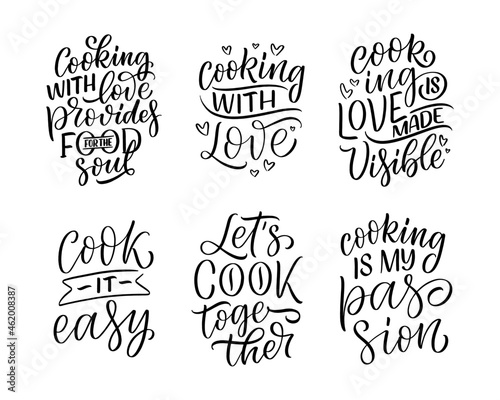 Cooking
WITH love
provides
FOOD
FOR THE
soul
cooking
WITH
Love
cook
ing IS
LOVE
MADE
Visible
cook
IT
easy
Let's
COOK
toge
ther
cooking
IS MY
pas
sion
Adobe Stock | #462008387